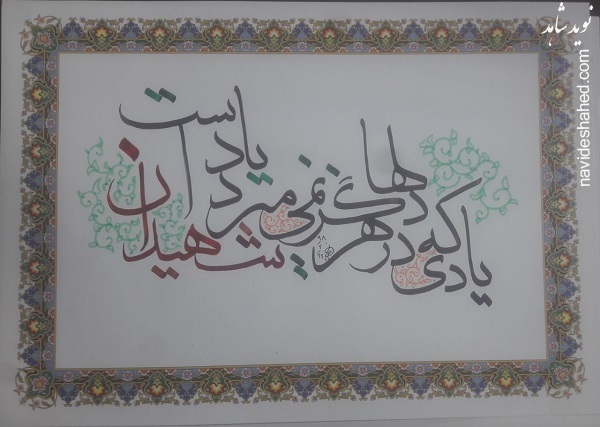 نوید شاهد
navideshahed.com
یادی که در دلها هرگز نمی میرد یاد شهیدان است